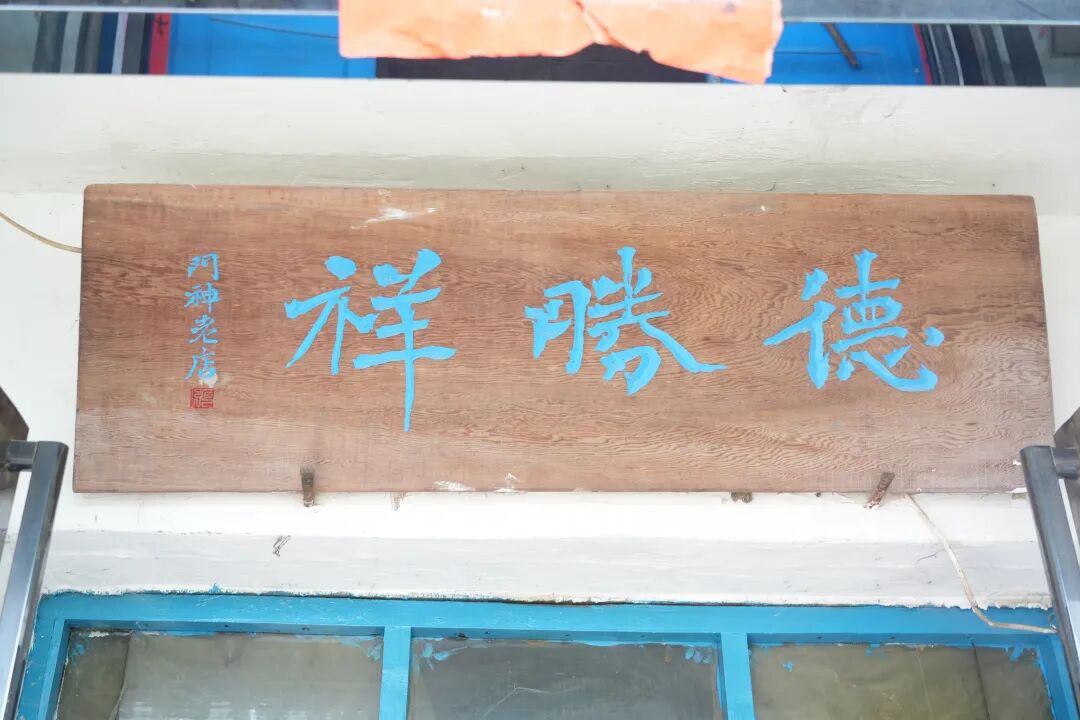 德勝祥
阿神老店